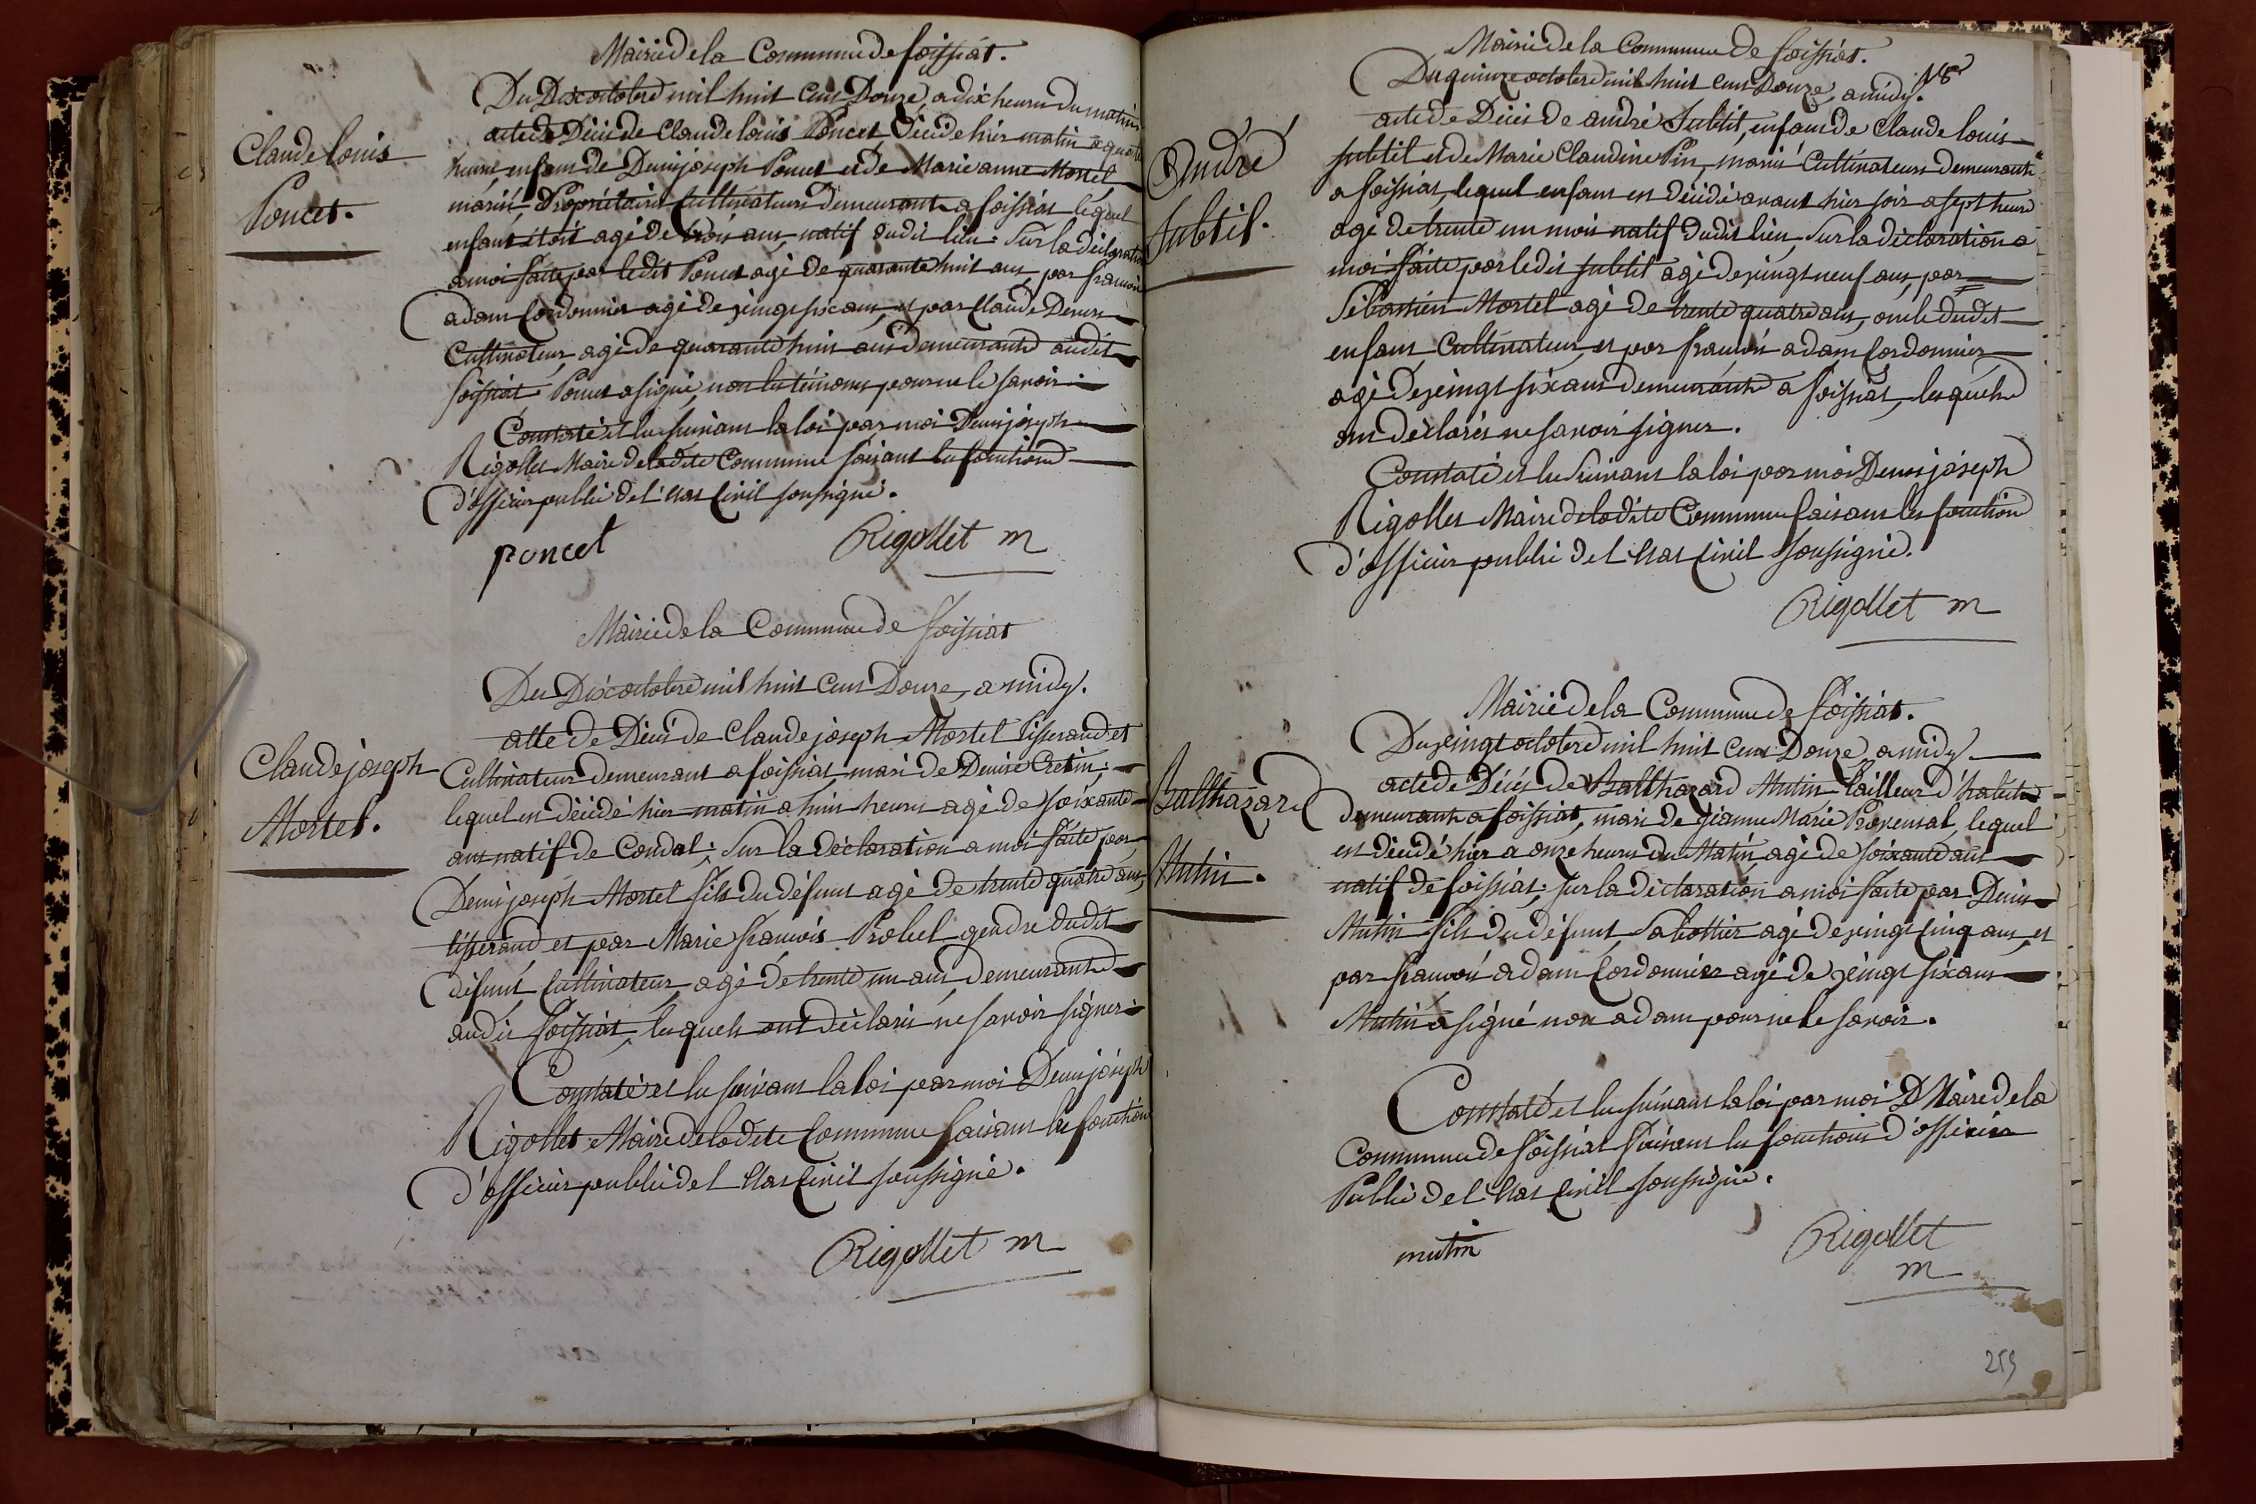 Mairie de la Commune de foissiat.
Du Dix octobre mil huit cent Douze, a dix heures du matin
acte de Décés de Claude louis Poncet, décédé hier matin a quatre
heures, enfant de Denis joseph Poncet et de Marie anne Mortel
mariés, Propriétaires Cultivateurs demeurants a foissiat lequel
enfant étoit agé de trois ans, natif dudit lieu. Sur la déclaration
a moi faite par ledit Poncet agé de quarante huit ans, par francois
adam Cordonnier agé de vingt six ans, et par Claude Denis
Cultivateur, agé de quarante huit ans demeurants audit
foissiat Poncet a signé, non les témoins pour ne le savoir.
Constaté et lu suivant la loi par moi Denis joseph
Rigollet Maire de ladite Commune faisant les fonctions
d'officier public de l'état Civil soussigné.
poncet Rigollet m
Claude louis
Poncet.
Mairie de la Commune de foissiat
Du Dix octobre mil huit cent Douze, a midy.
acte de Décés de Claude joseph Mortel Tisserand et
Cultivateur demeurant a foissiat mari de Denise Cretin;
lequel est décédé hier matin a huit heures agé de soixante
ans natif de Condal; Sur la déclaration a moi faite par
Denis joseph Mortel fils du défunt agé de trente quatre ans,
tisserand et par Marie francois Probel gendre dudit
défunt, Cultivateur agé de trente un ans, demeurants
audit foissiat, lesquels ont déclaré ne savoir signer.
Constaté et lu suivant la loi par moi Denis joseph
Rigollet Maire de ladite Commune faisant les fonctions
d'officier public de l'état Civil soussigné.
Rigollet m
Claude joseph
Mortel.
Mairie de la Commune de foissiat.
Du quinze octobre mil huit cent Douze, a midy.
acte de Décés de andré Subtil, enfant de Claude louis
subtil et de Marie Claudine Pin, mariés Cultivateurs demeurants
a foissiat, lequel enfant est décédé avant hier soir a sept heures
agé de trente un mois natif dudit lieu. Sur la déclaration a
moi faite par ledit subtil agé de vingt neuf ans, par
Sébastien Mortel agé de trente quatre ans, oncle dudit
enfant, Cultivateur, et par francois adam Cordonnier
agé de vingt six ans demeurants a foissiat, lesquels
ont déclarés ne savoir signer.
Constaté et lu Suivant la loi par moi Denis joseph
Rigollet Maire de ladite Commune faisant les fonctions
d'officier public de l'état Civil soussigné.
Rigollet m
André
Subtil.
Mairie de la Commune de foissiat.
Du vingt octobre mil huit cent Douze a midy
acte de Décés de Balthazard Mutin tailleur d'habits
demeurant a foissiat, mari de jeanne Marie Provensal, lequel
est décédé hier a onze heures du Matin agé de soixante ans
natif de foissiat; sur la déclaration a moi faite par Denis
Mutin fils du défunt, Sabottier agé de vingt cinq ans, et
par francois adam Cordonnier agé de vingt six ans
Mutin a signé non adam pour ne le savoir.
Constaté et lu suivant la loi par moi D Maire de la
Commune de foissiat faisant les fonctions d'officier
Public de l'état Civil soussigné.
mutin Rigollet
m
Balthazard
Mutin.
259